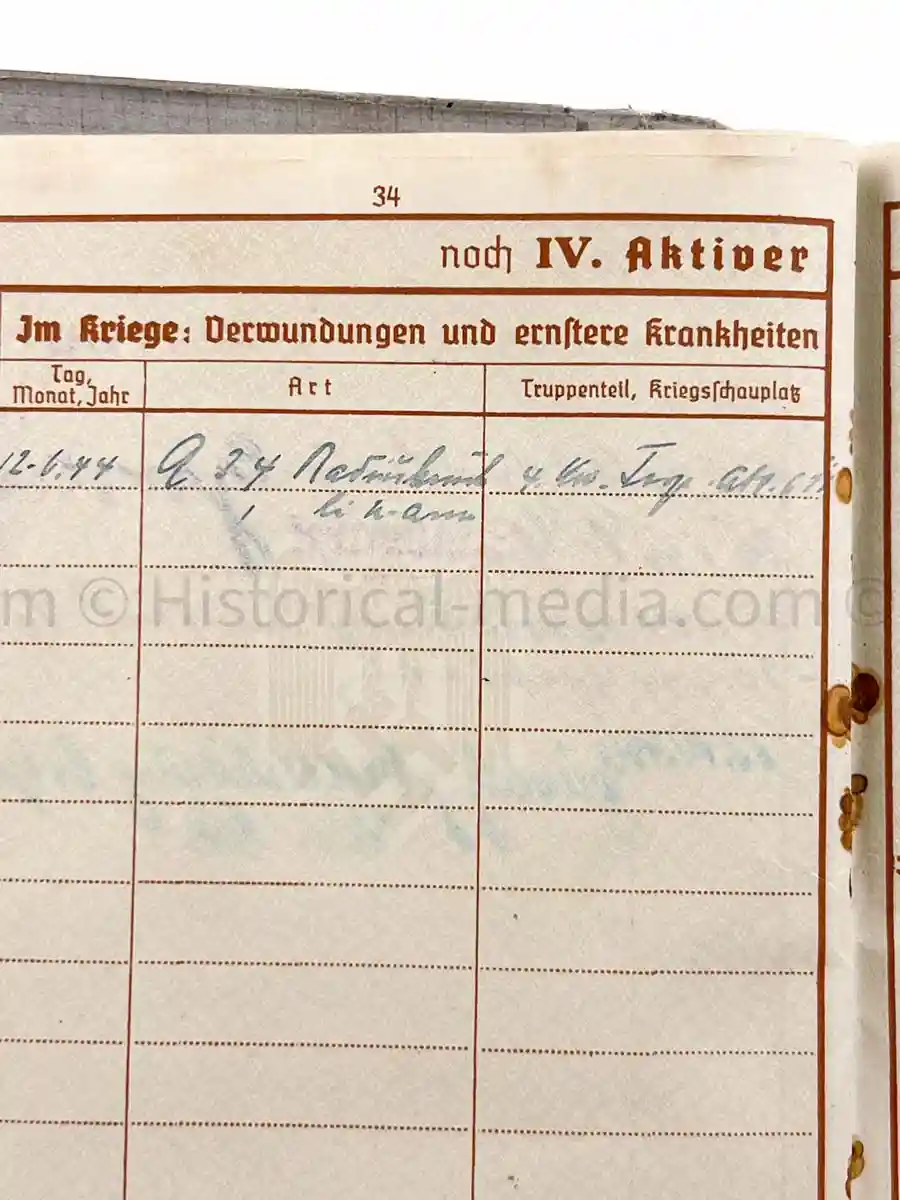 34
noch IV. Aktiver
Im Kriege: Verwundungen und ernstere Krankheiten
Tag,
Monat, Jahr
Art
Truppenteil, Kriegsschauplatz
12.6.44 4. Kw. Trsp. Abt.
li
m © Historical-media.com ©